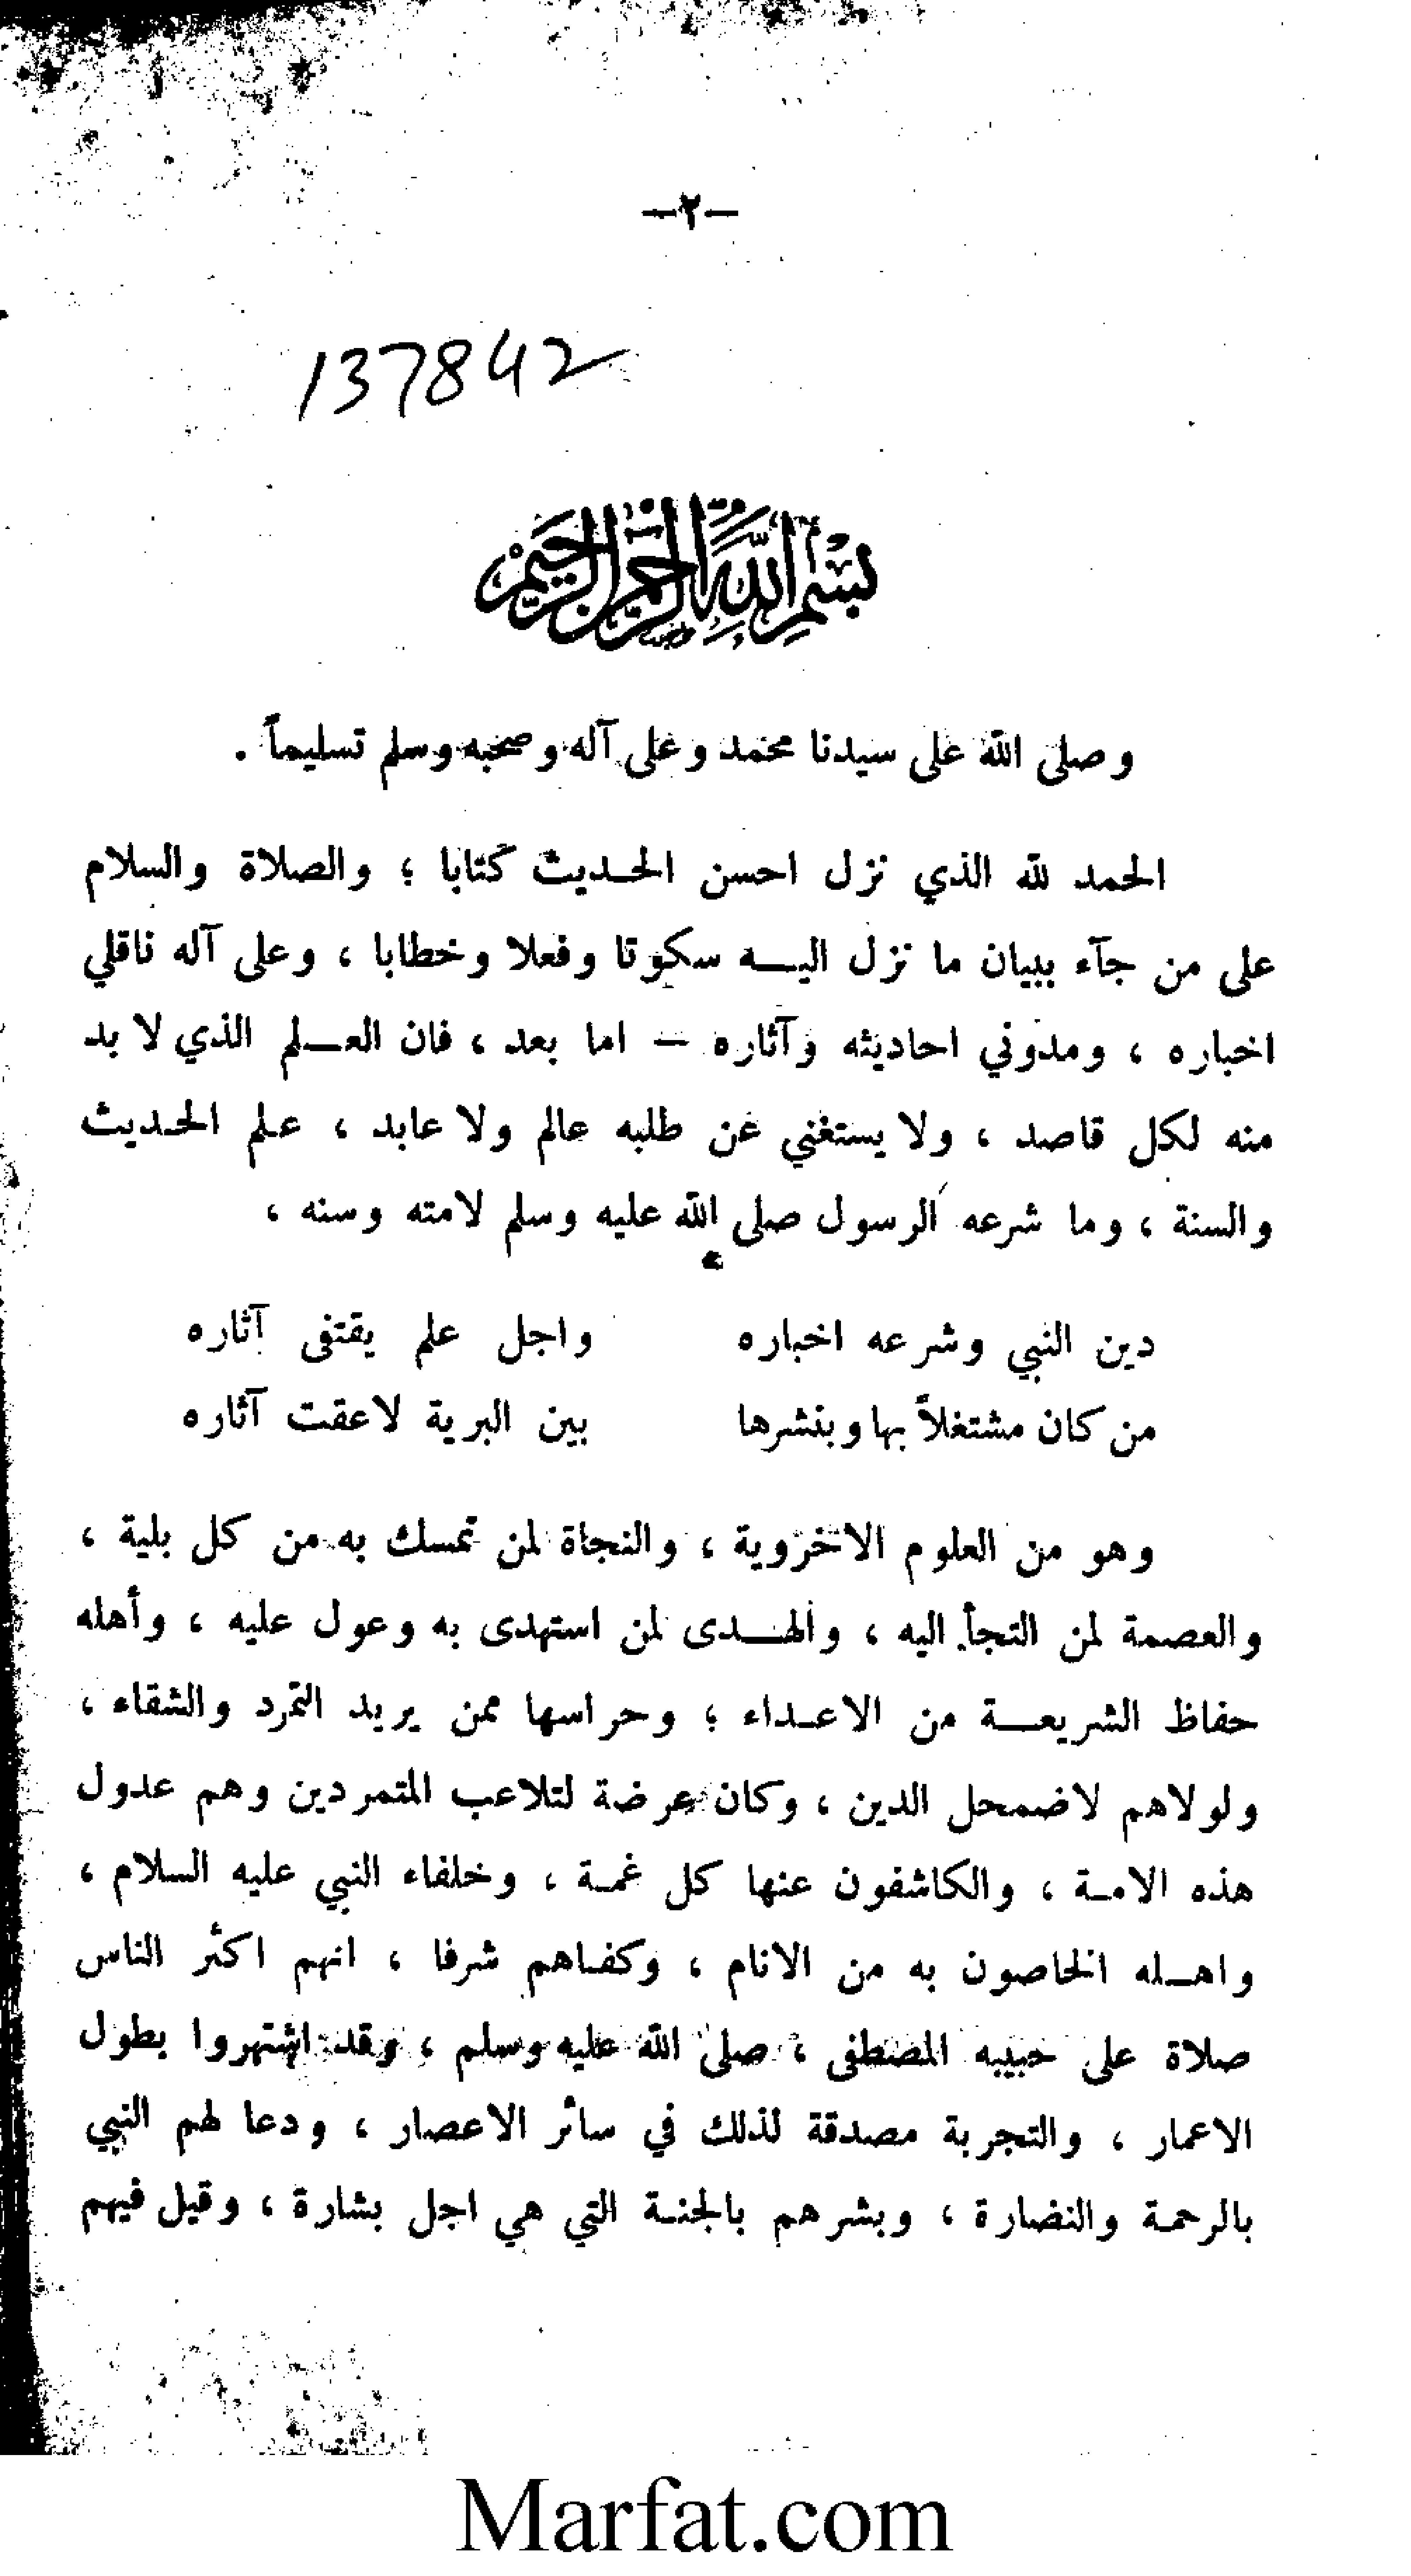 —٢—
137842
بسم الله الرحمن الرحيم
وصلى الله على سيدنا محمد وعلى آله وصحبه وسلم تسليماً .
الحمد لله الذي نزل احسن الحديث كتابا ؛ والصلاة والسلام
على من جآء ببيان ما نزل اليه سكوتا وفعلا وخطابا ، وعلى آله ناقلي
اخباره ، ومدوني احاديثه وآثاره — اما بعد ، فان العلم الذي لا بد
منه لكل قاصد ، ولا يستغني عن طلبه عالم ولا عابد ، علم الحديث
والسنة ، وما شرعه الرسول صلى الله عليه وسلم لامته وسنه ،
دين النبي وشرعه اخباره واجل علم يقتفى آثاره
من كان مشتغلاً بها وبنشرها بين البرية لاعقت آثاره
وهو من العلوم الاخروية ، والنجاة لمن تمسك به من كل بلية ،
والعصمة لمن التجأ اليه ، والهدى لمن استهدى به وعول عليه ، وأهله
حفاظ الشريعة من الاعداء ؛ وحراسها ممن يريد التمرد والشقاء ،
ولولاهم لاضمحل الدين ، وكان عرضة لتلاعب المتمردين وهم عدول
هذه الامة ، والكاشفون عنها كل غمة ، وخلفاء النبي عليه السلام ،
واهله الخاصون به من الانام ، وكفاهم شرفا ، انهم اكثر الناس
صلاة على حبيبه المصطفى ، صلى الله عليه وسلم ، وقد اشتهروا بطول
الاعمار ، والتجربة مصدقة لذلك في سائر الاعصار ، ودعا لهم النبي
بالرحمة والنضارة ، وبشرهم بالجنة التي هي اجل بشارة ، وقيل فيهم
Marfat.com